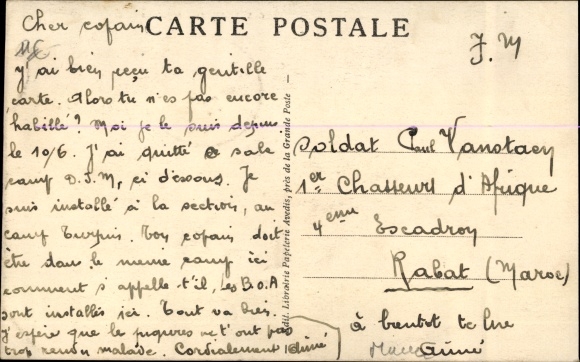 Cher copain
CARTE POSTALE
F. M
J'ai bien reçu ta gentille
carte. Alors tu n'es pas encore
habillé ? Moi je le suis depuis
le 10/6. J'ai quitté ce sale
camp D.I.M, ci dessous. Je
suis installé à la section, au
camp Turpin. Ton copain doit
être dans le meme camp ici
comment s'appelle t'il, les B.O.A
sont installés ici. Tout va bien.
J'espère que le piqures ne t'ont pas
trop rendu malade. Cordialement Aimé
Edit. Librairie Papeterie Awedis, près de la Grande Poste
Soldat Paul Vanstaen
1er Chasseurs d'Afrique
4eme Escadron
Rabat (Maroc)
à bientot te lire
Aimé